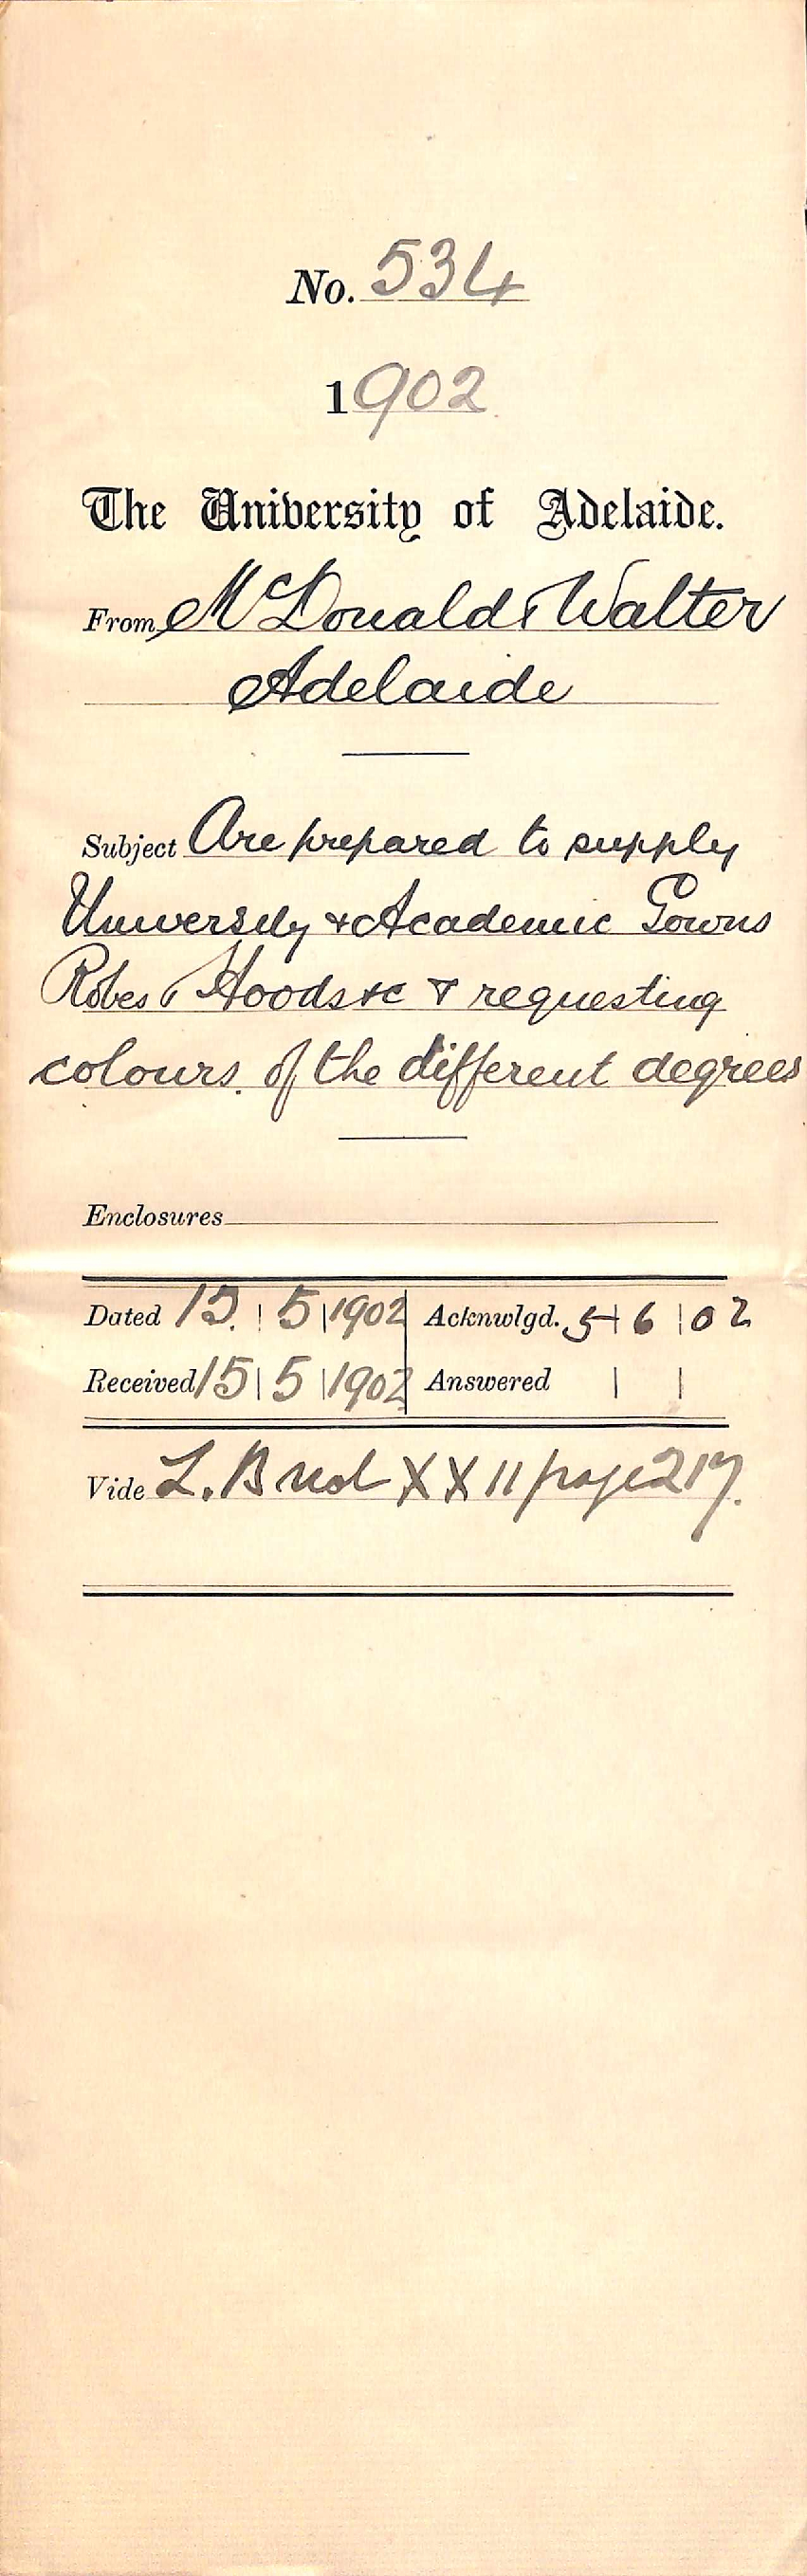 No. 534
1902
The University of Adelaide.
From McDonald & Walter
Adelaide
Subject Are prepared to supply
University & Academic Gowns
Robes, Hoods &c & requesting
colours of the different degrees
Enclosures
Dated 15 | 5 | 1902 Acknwlgd. 5 | 6 | 02
Received 15 | 5 | 1902 Answered | |
Vide L. B vol XX11 page 217.